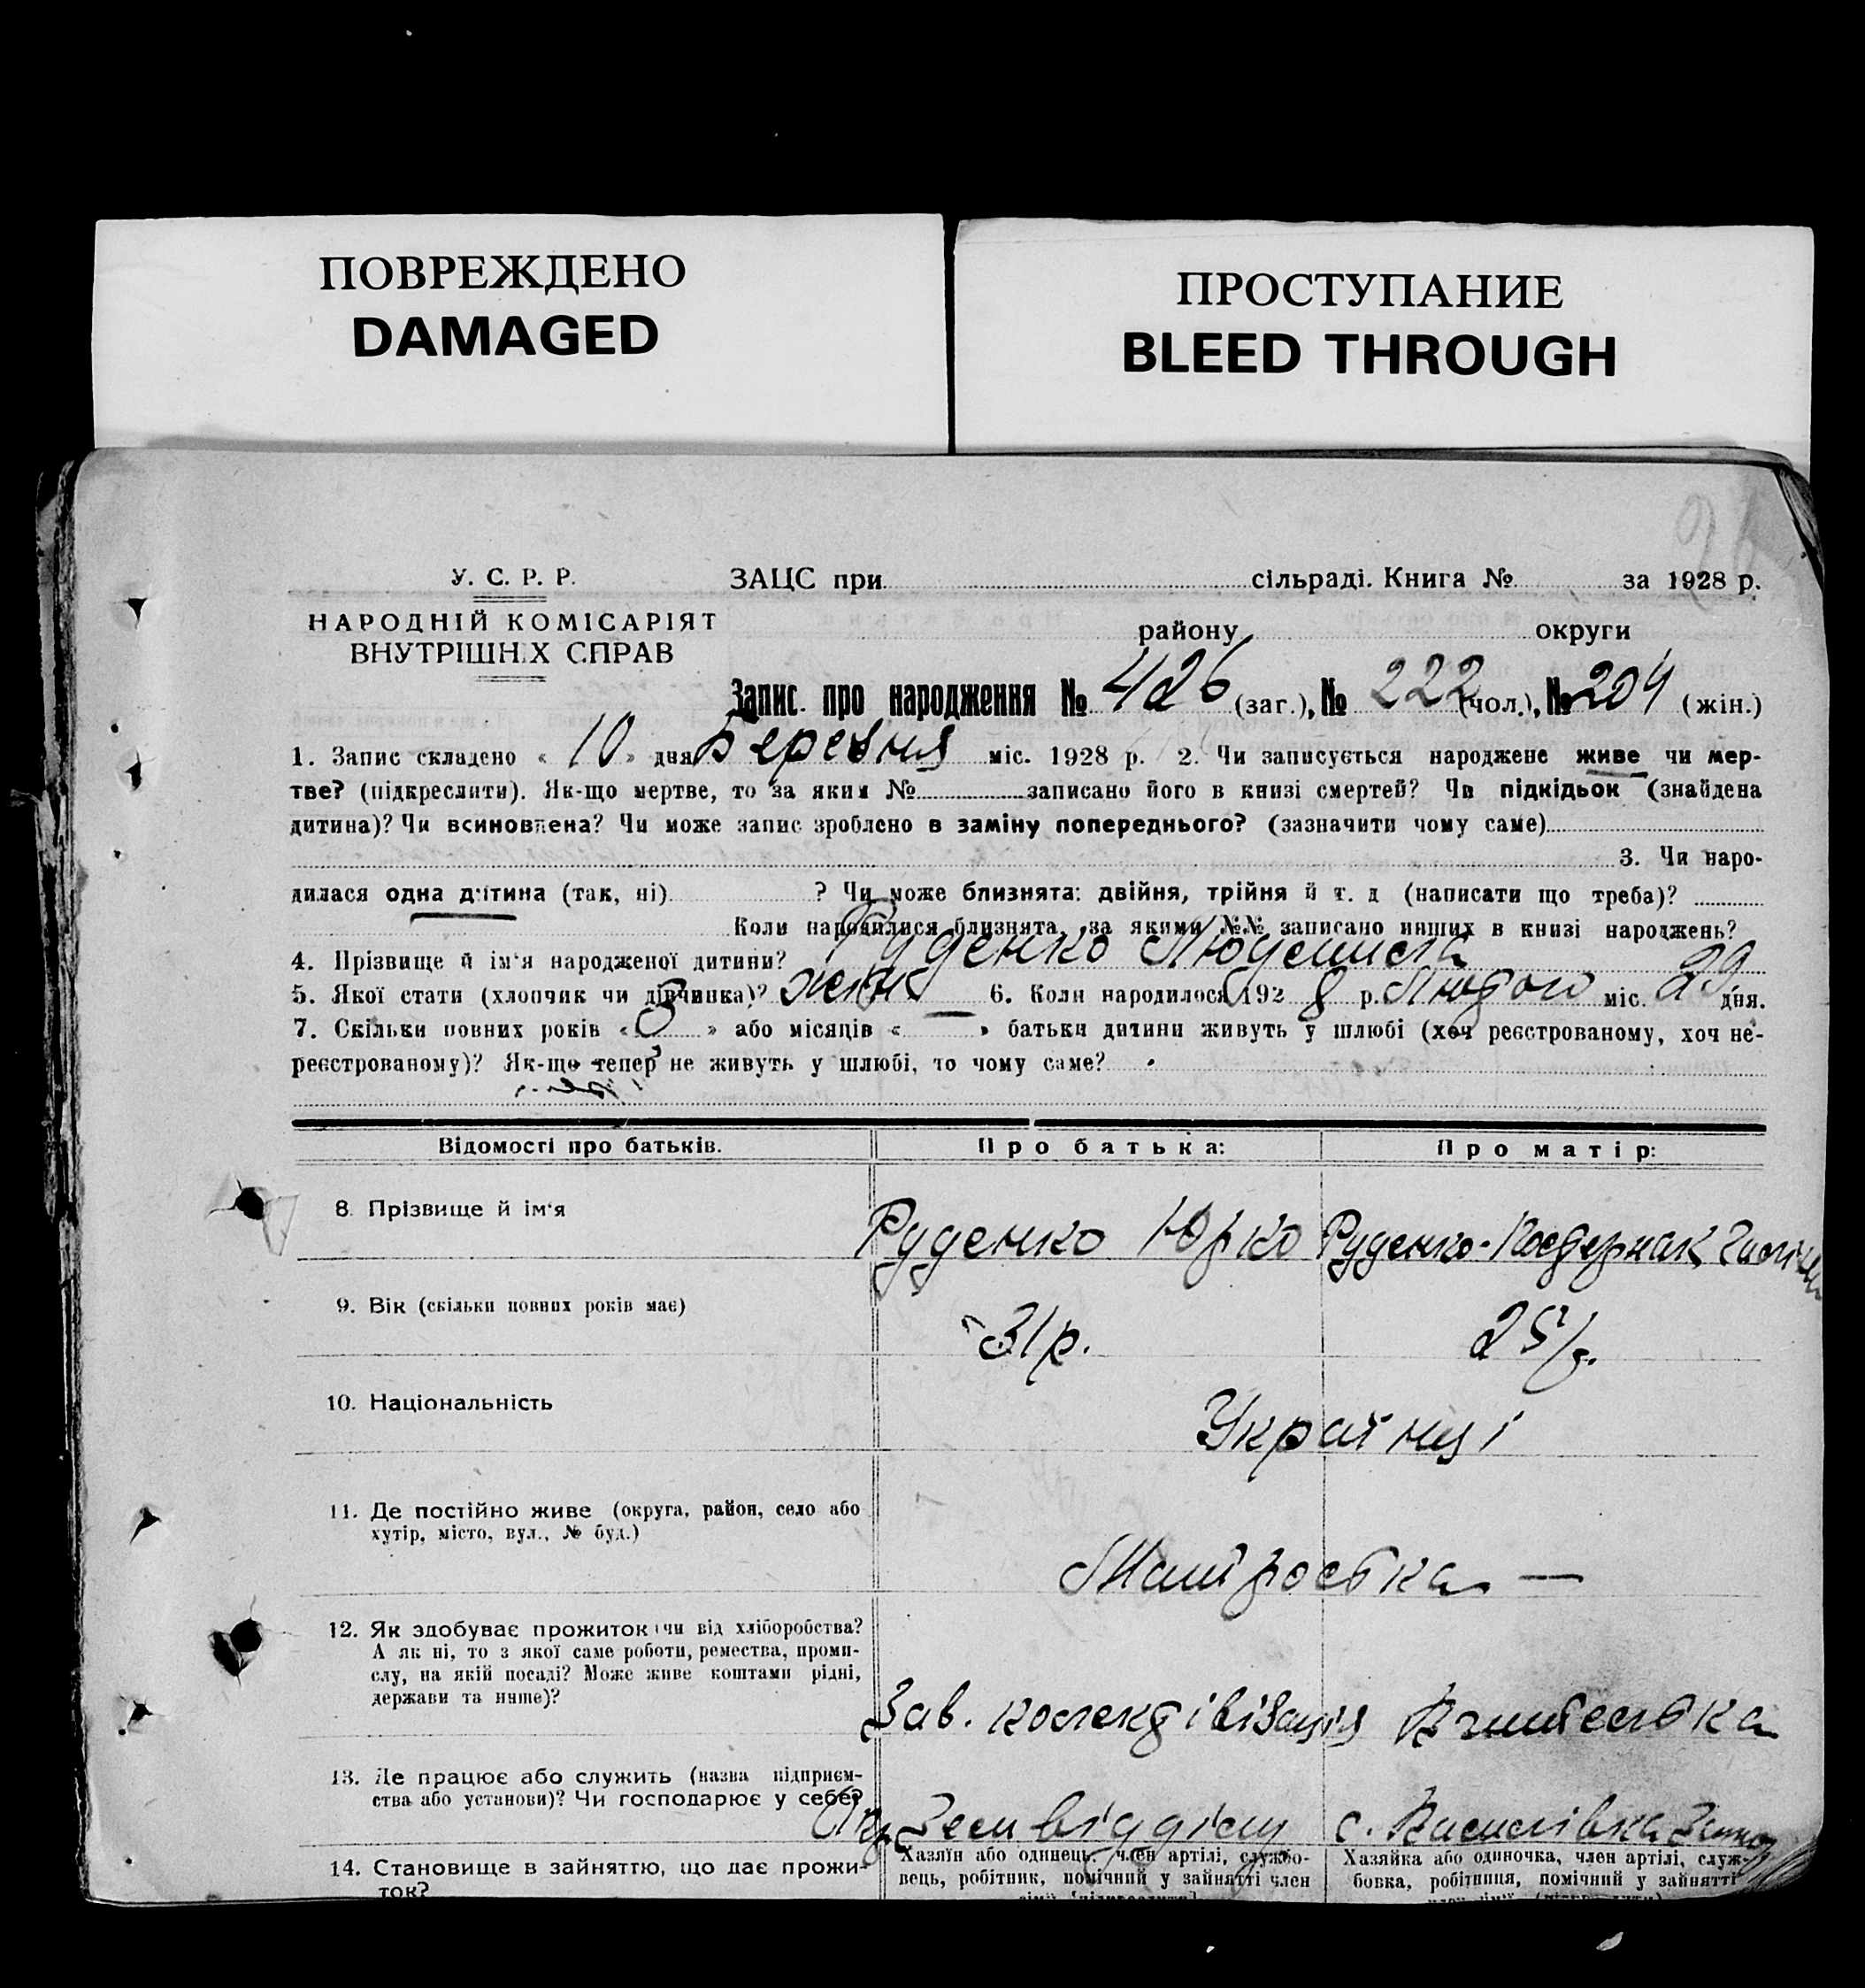 ПОВРЕЖДЕНО
DAMAGED
ПРОСТУПАНИЕ
BLEED THROUGH
У. С. Р. Р.
НАРОДНІЙ КОМІСАРІЯТ
ВНУТРІШНІХ СПРАВ
ЗАЦС при сільраді. Книга № за 1928 р.
району округи
Запис про народження № 426 (заг.), № 222 (чол.), № 204 (жін.)
1. Запис складено « 10 » дня Березня міс. 1928 р. 2. Чи записується народжене живе чи мер-
тве? (підкреслити). Як-що мертве, то за яким № записано його в книзі смертей? Чи підкідьок (знайдена
дитина)? Чи всиновлена? Чи може запис зроблено в заміну попереднього? (зазначити чому саме)
3. Чи наро-
дилася одна дитина (так, ні) ? Чи може близнята: двійня, трійня й т. д (написати що треба)?
Коли народилися близнята, за якими №№ записано инших в книзі народжень?
4. Прізвище й ім'я народженої дитини? Руденко Людмила
5. Якої стати (хлопчик чи дівчинка)? жін 6. Коли народилося 192 8 р. Лютого міс. 29 дня.
7. Скільки повних років « 3 » або місяців « — » батьки дитини живуть у шлюбі (хоч реєстрованому, хоч не-
реєстрованому)? Як-що тепер не живуть у шлюбі, то чому саме?
Відомості про батьків. Про батька: Про матір:
8. Прізвище й ім'я Руденко Юрко Руденко-
9. Вік (скільки повних років має) 31 р. 25 р.
10. Національність Українці
11. Де постійно живе (округа, район, село або
хутір, місто, вул., № буд.)
12. Як здобуває прожиток чи від хліборобства?
А як ні, то з якої саме роботи, ремества, проми-
слу, на якій посаді? Може живе коштами рідні,
держави та инше)?
Зав. колектівізація Вчителька
13. Де працює або служить (назва підприєм-
ства або установи)? Чи господарює у себе?
Окр. Земвідділу с. Василівка
14. Становище в зайняттю, що дає прожи-
ток?
Хазяїн або одинець, член артілі, службо-
вець, робітник, помічний у зайнятті член
Хазяйка або одиночка, член артілі, служ-
бовка, робітниця, помічний у зайнятті